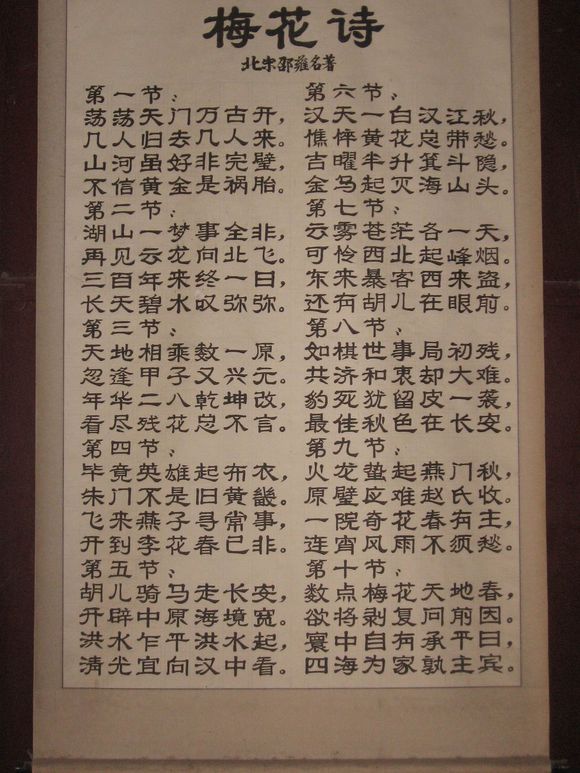 梅花诗
北宋邵雍名著
第一节：
荡荡天门万古开，
几人归去几人来。
山河虽好非完璧，
不信黄金是祸胎。
第二节：
湖山一梦事全非，
再见云龙向北飞。
三百年来终一日，
长天碧水叹弥弥。
第三节：
天地相乘数一原，
忽逢甲子又兴元。
年华二八乾坤改，
看尽残花总不言。
第四节：
毕竟英雄起布衣，
朱门不是旧黄畿。
飞来燕子寻常事，
开到李花春已非。
第五节：
胡儿骑马走长安，
开辟中原海境宽。
洪水乍平洪水起，
清光宜向汉中看。
第六节：
汉天一白汉江秋，
憔悴黄花总带愁。
吉曜半升箕斗隐，
金马起灭海山头。
第七节：
云雾苍茫各一天，
可怜西北起峰烟。
东来暴客西来盗，
还有胡儿在眼前。
第八节：
如棋世事局初残，
共济和衷却大难。
豹死犹留皮一袭，
最佳秋色在长安。
第九节：
火龙蛰起燕门秋，
原璧应难赵氏收。
一院奇花春有主，
连宵风雨不须愁。
第十节：
数点梅花天地春，
欲将剥复问前因。
寰中自有承平日，
四海为家孰主宾。